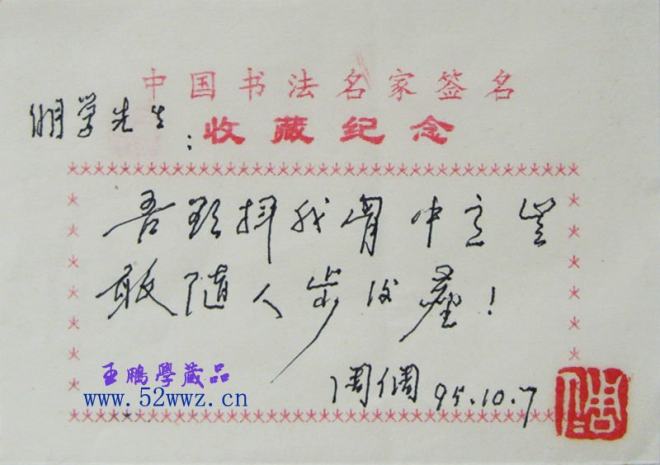 中国书法名家签名
鹏学先生：收藏纪念
吾欲抒我胷中意豈
敢随人步後塵！
周倜 95.10.7
王鵬學藏品
www.52wwz.cn